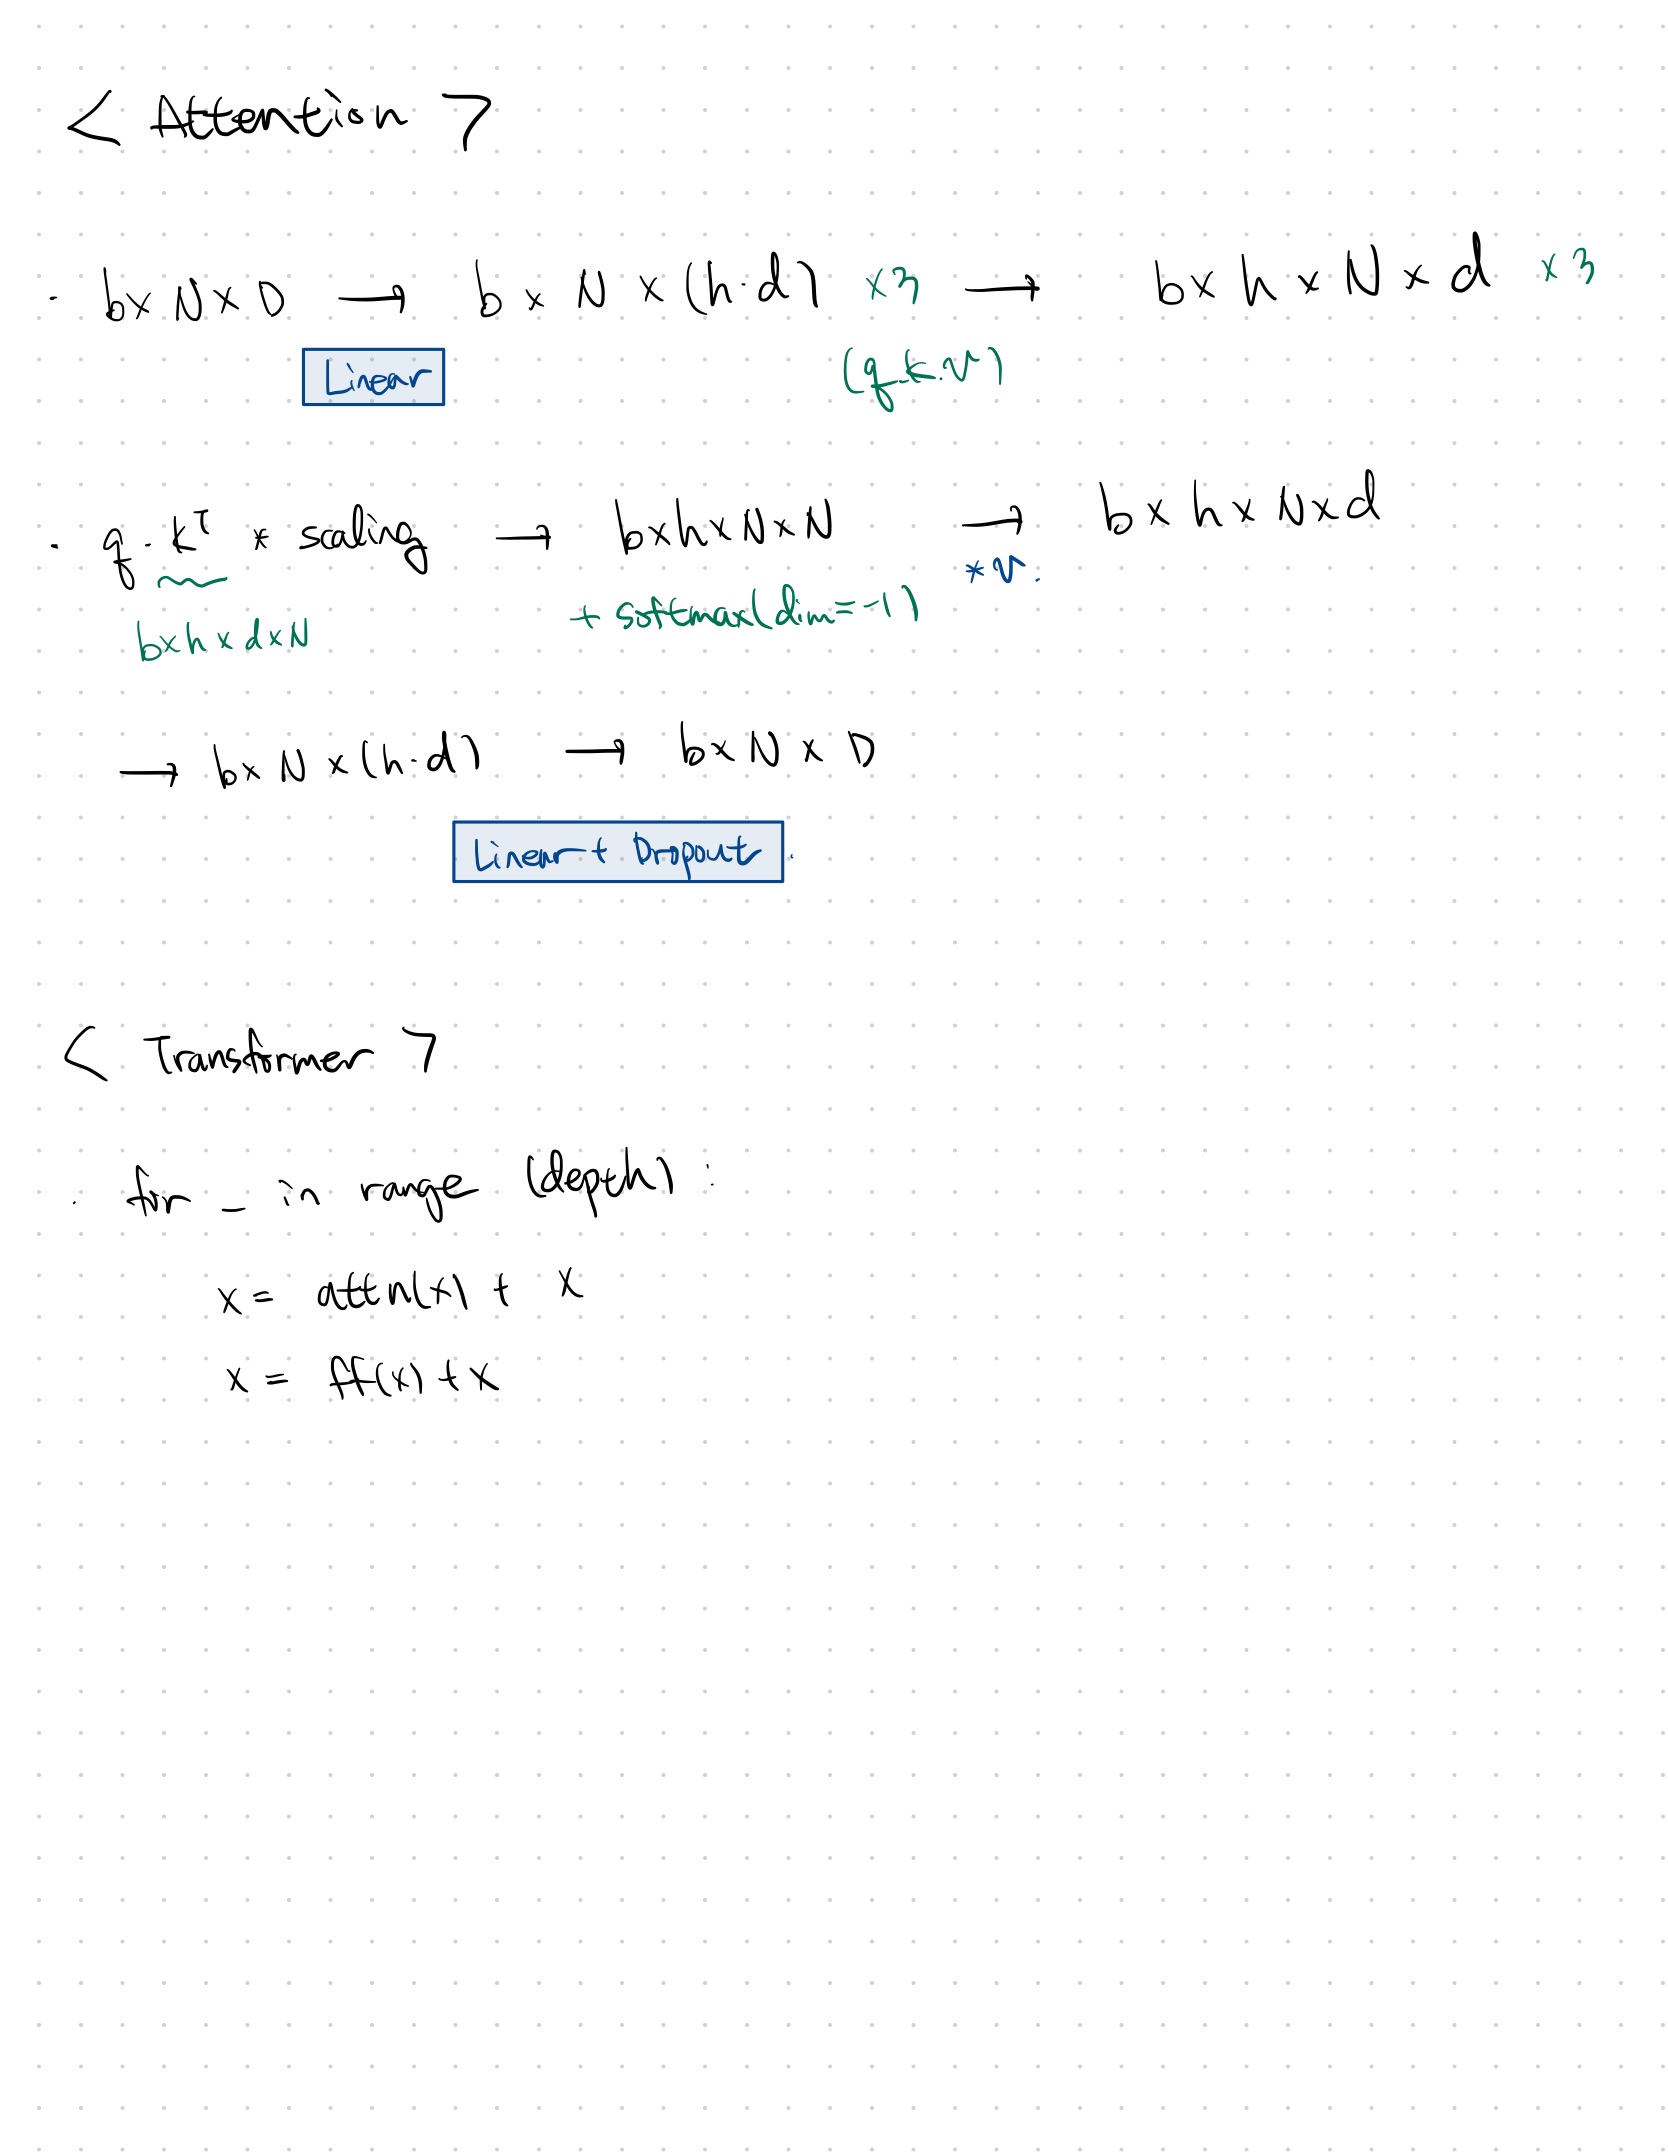 < Attention >
· b × N × D → b × N × (h·d) ×3 → b × h × N × d ×3
Linear
(q.k.v)
· q·kᵀ * scaling → b×h×N×N → b × h × N×d
*v.
+ softmax(dim=-1)
b×h×d×N
→ b× N ×(h·d) → b× N × D
Linear + Dropout.
< Transformer >
· for _ in range (depth) :
x = attn(x) + x
x = ff(x) + x